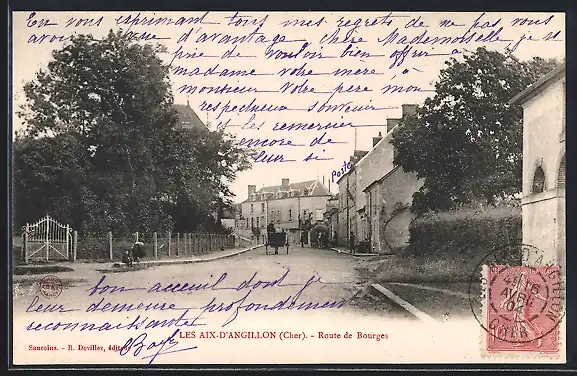 En vous exprimant tous mes regrets de ne pas vous
avoir vue d'avantage, chère Mademoiselle je
prie de vouloir bien offrir à
madame votre mère, à
monsieur votre père mon
respectueux souvenir
et les remercier
encore de
leur si
Poste
bon accueil dont je
leur demeure profondément
reconnaissante
LES AIX-D'ANGILLON (Cher). - Route de Bourges
Sancoins. - R. Dovillez, éditeur
CHER